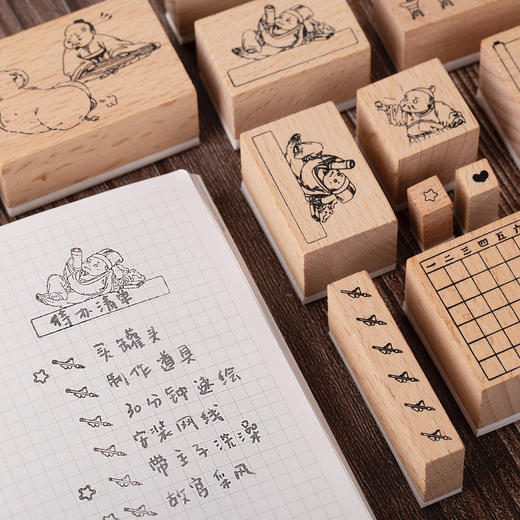 待办清单
买罐头
制作道具
30分钟速绘
安装网线
带主子洗澡
故宫采风
一 二 三 四 五 六